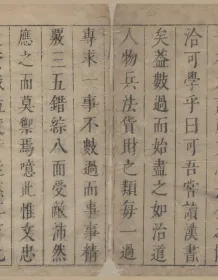 洽可學乎曰可吾嘗讀漢書
矣葢數過而始盡之如治道
人物兵法貨財之類每一過
專求一事不數過而事事精
覈三五錯綜八面受敵沛然
應之而莫禦焉噫此惟文忠